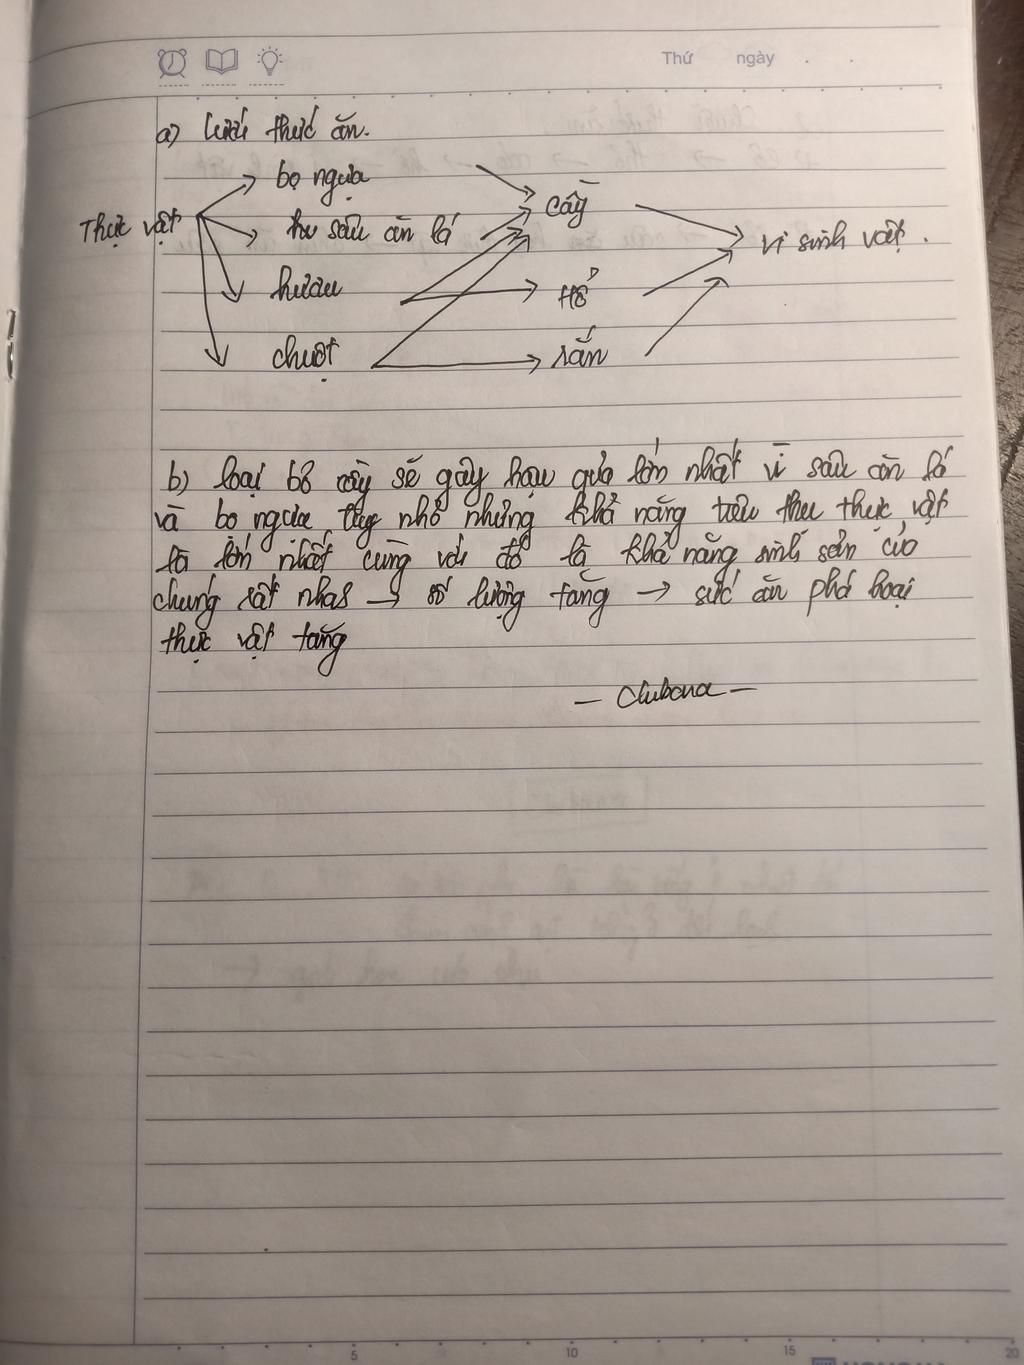 Thứ ngày
a) lưới thức ăn.
bọ ngựa
cầy
Thực vật
sâu ăn lá
vi sinh vật.
hươu
Hổ
chuột
rắn
b) loại bỏ cầy sẽ gây hậu quả lớn nhất vì sâu ăn lá
và bọ ngựa tuy nhỏ nhưng khả năng tiêu thụ thực vật
là lớn nhất cùng với đó là khả năng sinh sản của
chúng rất nhanh → số lượng tăng → sức ăn phá hoại
thực vật tăng
5 10 15 20